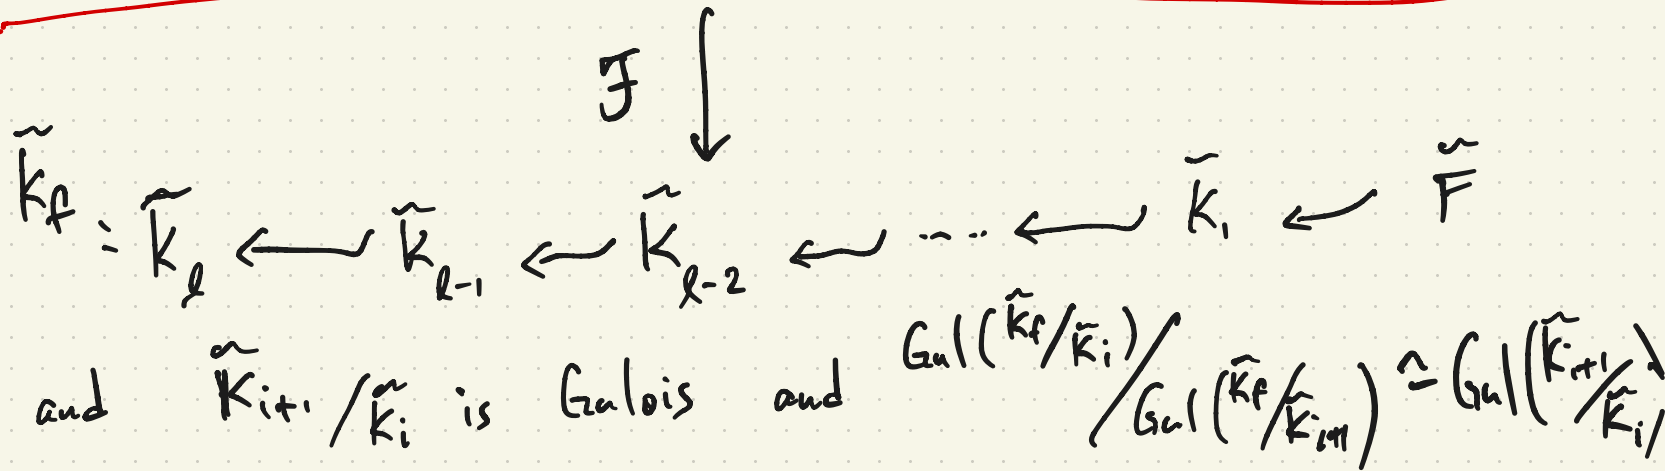 𝓕 ↓
K̃_f = K̃_ℓ ← K̃_{ℓ-1} ← K̃_{ℓ-2} ← ---- ← K̃_1 ← F̃
and K̃_{i+1}/K̃_i is Galois and Gal(K̃_f/K̃_i)/Gal(K̃_f/K̃_{i+1}) ≃ Gal(K̃_{i+1}/K̃_i)